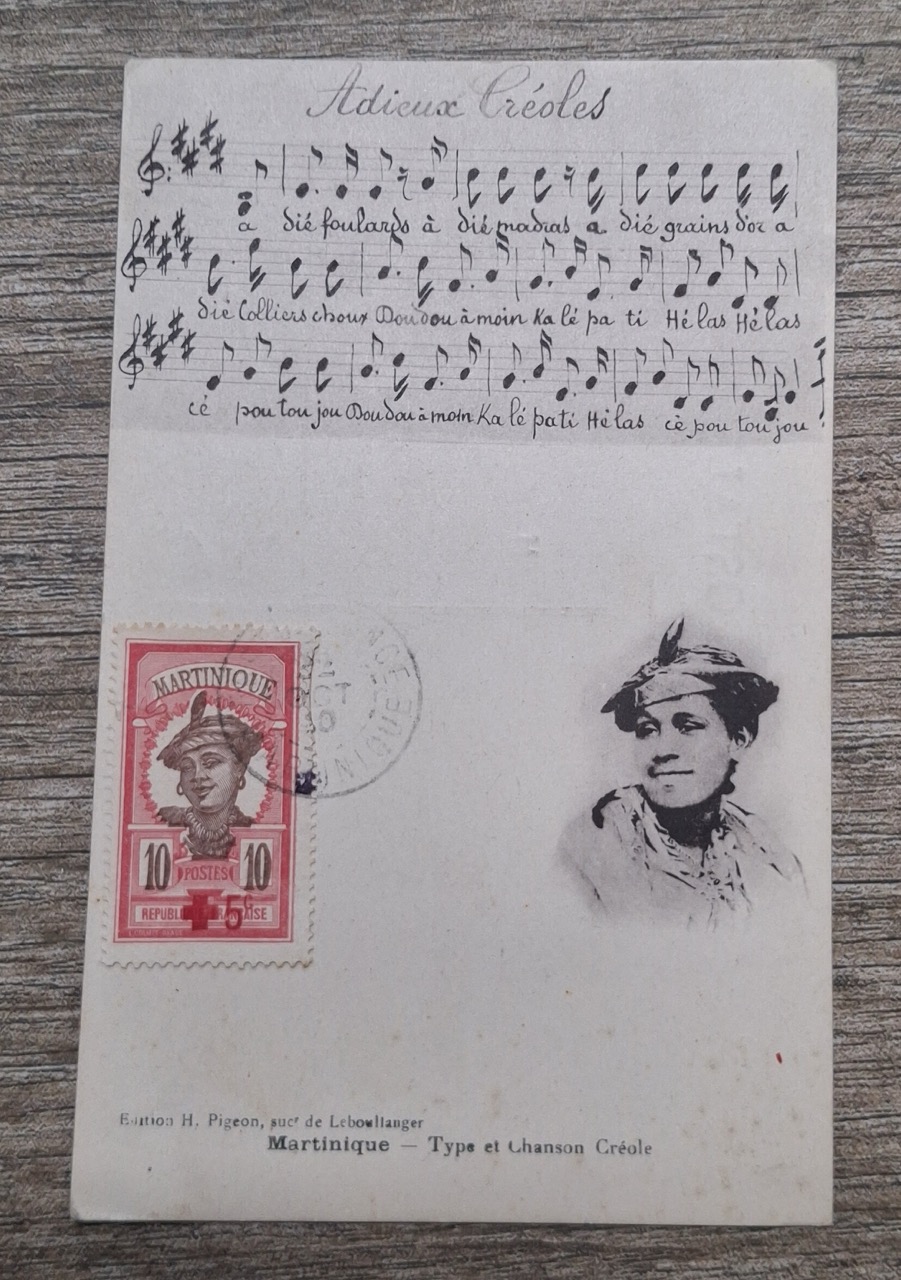 Adieux Créoles
a dié foulards à dié madras a dié grains d'or a
dié Colliers choux Doudou à moin Ka lé pa ti Hélas Hélas
cè pou tou jou Doudou à moin Ka lé pati Hèlas cè pou tou jou
MARTINIQUE
10 10
POSTES
5c
REPUBL FRANÇAISE
Edition H. Pigeon, sucr de Leboullanger
Martinique — Type et Chanson Créole